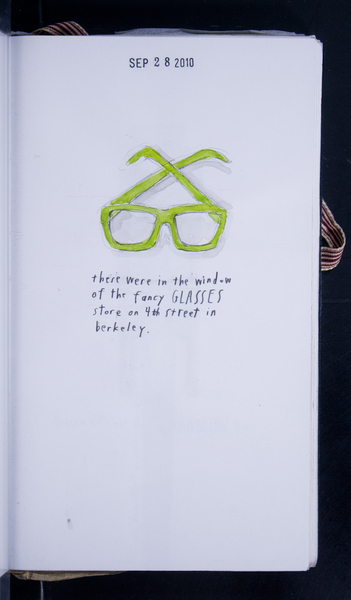 SEP 28 2010
there were in the window
of the fancy GLASSES
store on 4th street in
berkeley.